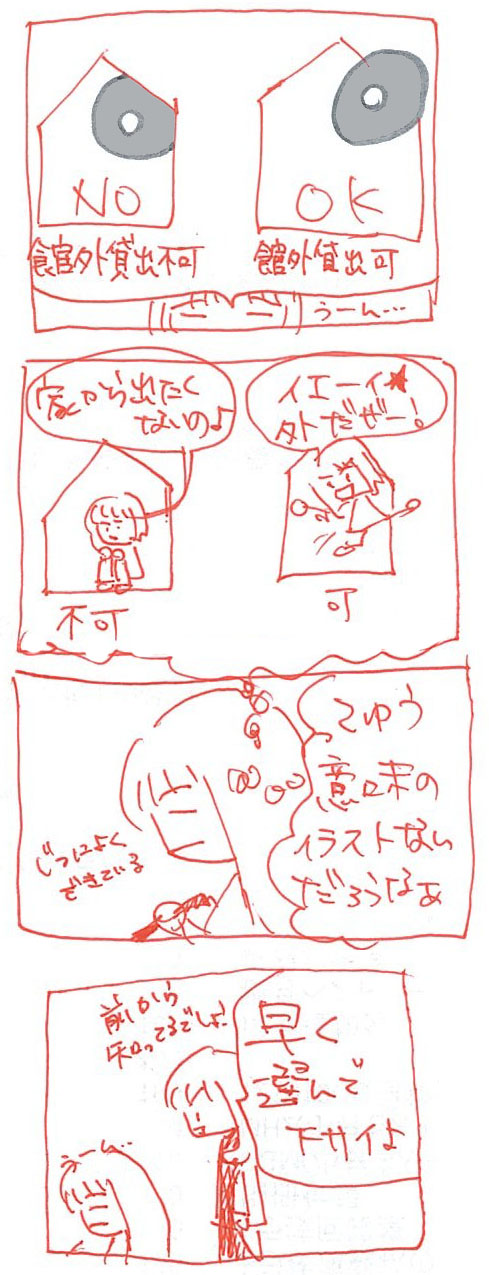 NO
OK
館外貸出不可
館外貸出可
うーん…
家から出たく
ないのよ
イエーイ★
外だぜー!
不可
可
てゆう
意味の
イラストない
だろうなぁ
じつによく
できている
前から
知ってるでしょ!
早く
選んで
下サイよ
うーん…